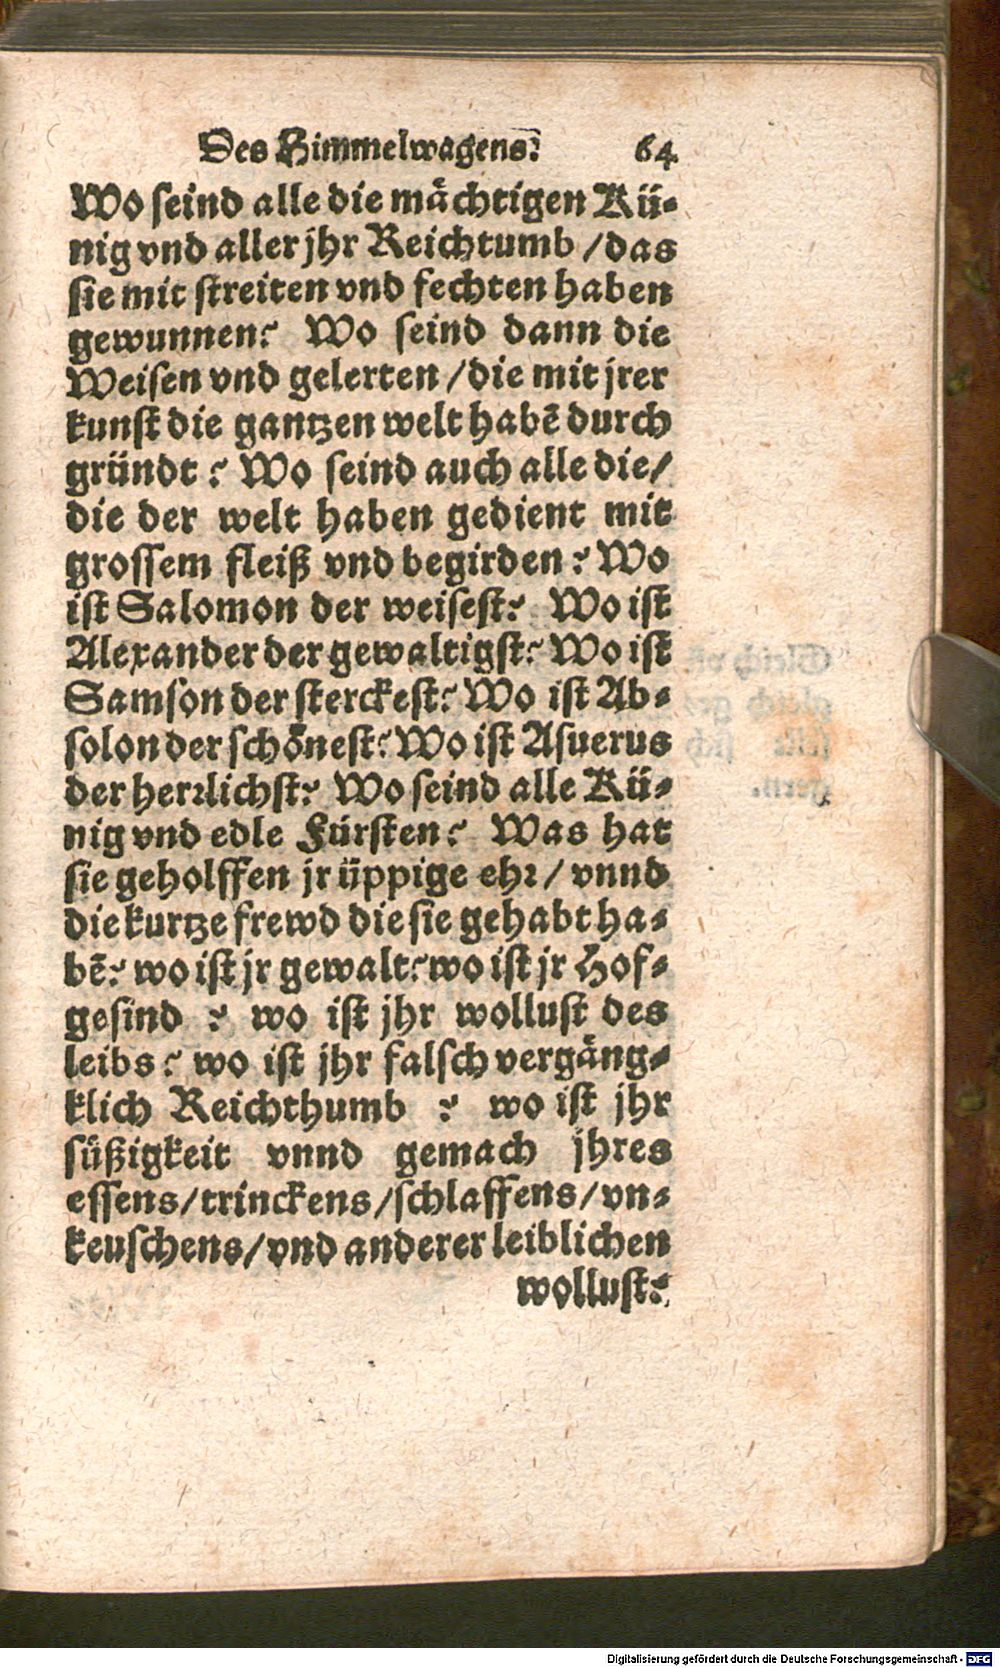 Des Himmelwagens. 64
Wo seind alle die mächtigen Kü-
nig vnd aller jhr Reichtumb / das
sie mit streiten vnd fechten haben
gewunnen? Wo seind dann die
Weisen vnd gelerten / die mit jrer
kunst die gantzen welt habē durch
gründt? Wo seind auch alle die /
die der welt haben gedient mit
grossem fleiß vnd begirden? Wo
ist Salomon der weisest? Wo ist
Alexander der gewaltigst? Wo ist
Samson der sterckest? Wo ist Ab-
solon der schönest? Wo ist Asuerus
der herrlichst? Wo seind alle Kü-
nig vnd edle Fürsten? Was hat
sie geholffen jr üppige ehr / vnnd
die kurtze frewd die sie gehabt ha-
bē? wo ist jr gewalt? wo ist jr Hof-
gesind ? wo ist jhr wollust des
leibs? wo ist jhr falsch vergäng-
klich Reichthumb ? wo ist jhr
süßigkeit vnnd gemach jhres
essens / trinckens / schlaffens / vn-
keuschens / vnd anderer leiblichen
wollust?
Digitalisierung gefördert durch die Deutsche Forschungsgemeinschaft - DFG